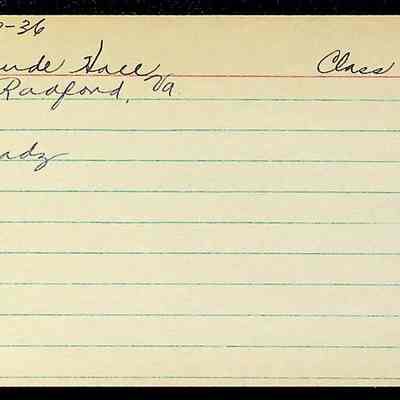 -36
ude Hall Class
Radford, Va
adz